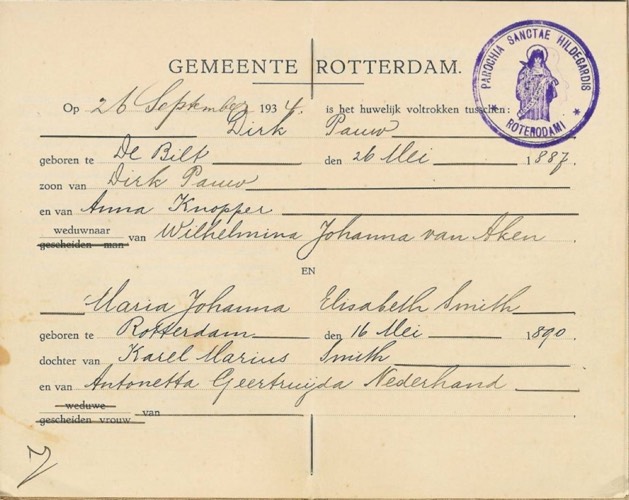 GEMEENTE ROTTERDAM.
PAROCHIA SANCTAE HILDEGARDIS
ROTERODAMI
Op 26 September 1934. is het huwelijk voltrokken tusschen:
Dirk Pauw
geboren te De Bilt den 26 Mei 1887.
zoon van Dirk Pauw
en van Anna Knopper
weduwnaar
gescheiden man van Wilhelmina Johanna van Aken.
EN
Maria Johanna Elisabeth Smith
geboren te Rotterdam den 16 Mei 1890.
dochter van Karel Marius Smith
en van Antonetta Geertruijda Nederhand
weduwe
gescheiden vrouw van